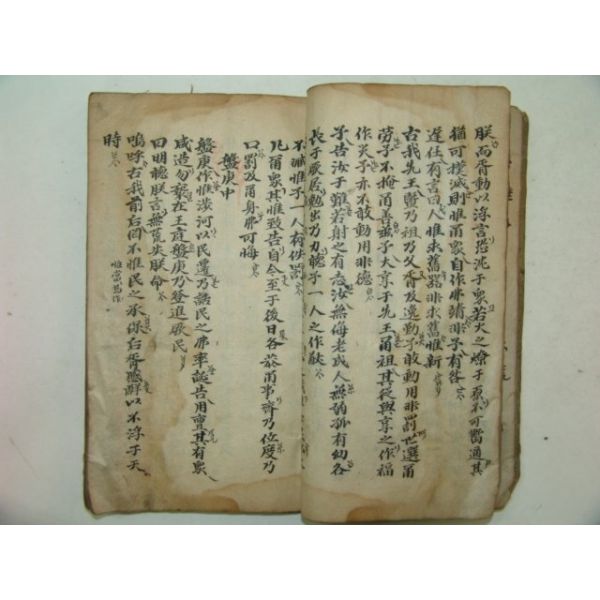 朕而胥動以浮言恐沈于衆若火之燎于原不可嚮邇其
猶可撲滅則惟爾衆自作弗靖非予有咎
遲任有言曰人惟求舊器非求舊惟新
古我先王曁乃祖乃父胥及逸勤予敢動用非罰世選爾
勞予不掩爾善玆予大享于先王爾祖其從與享之作福
作災予亦不敢動用非德
予告汝于難若射之有志汝無侮老成人無弱孤有幼各
長于厥居勉出乃力聽予一人之作猷
不臧惟予一人有佚罰
凡爾衆其惟致告自今至于後日各恭爾事齊乃位度乃
口罰及爾身弗可悔
盤庚中
盤庚作惟涉河以民遷乃話民之弗率誕告用亶其有衆
咸造勿褻在王庭盤庚乃登進厥民
曰明聽朕言無荒失朕命
嗚呼古我前后罔不惟民之承保后胥慼鮮以不浮于天
時